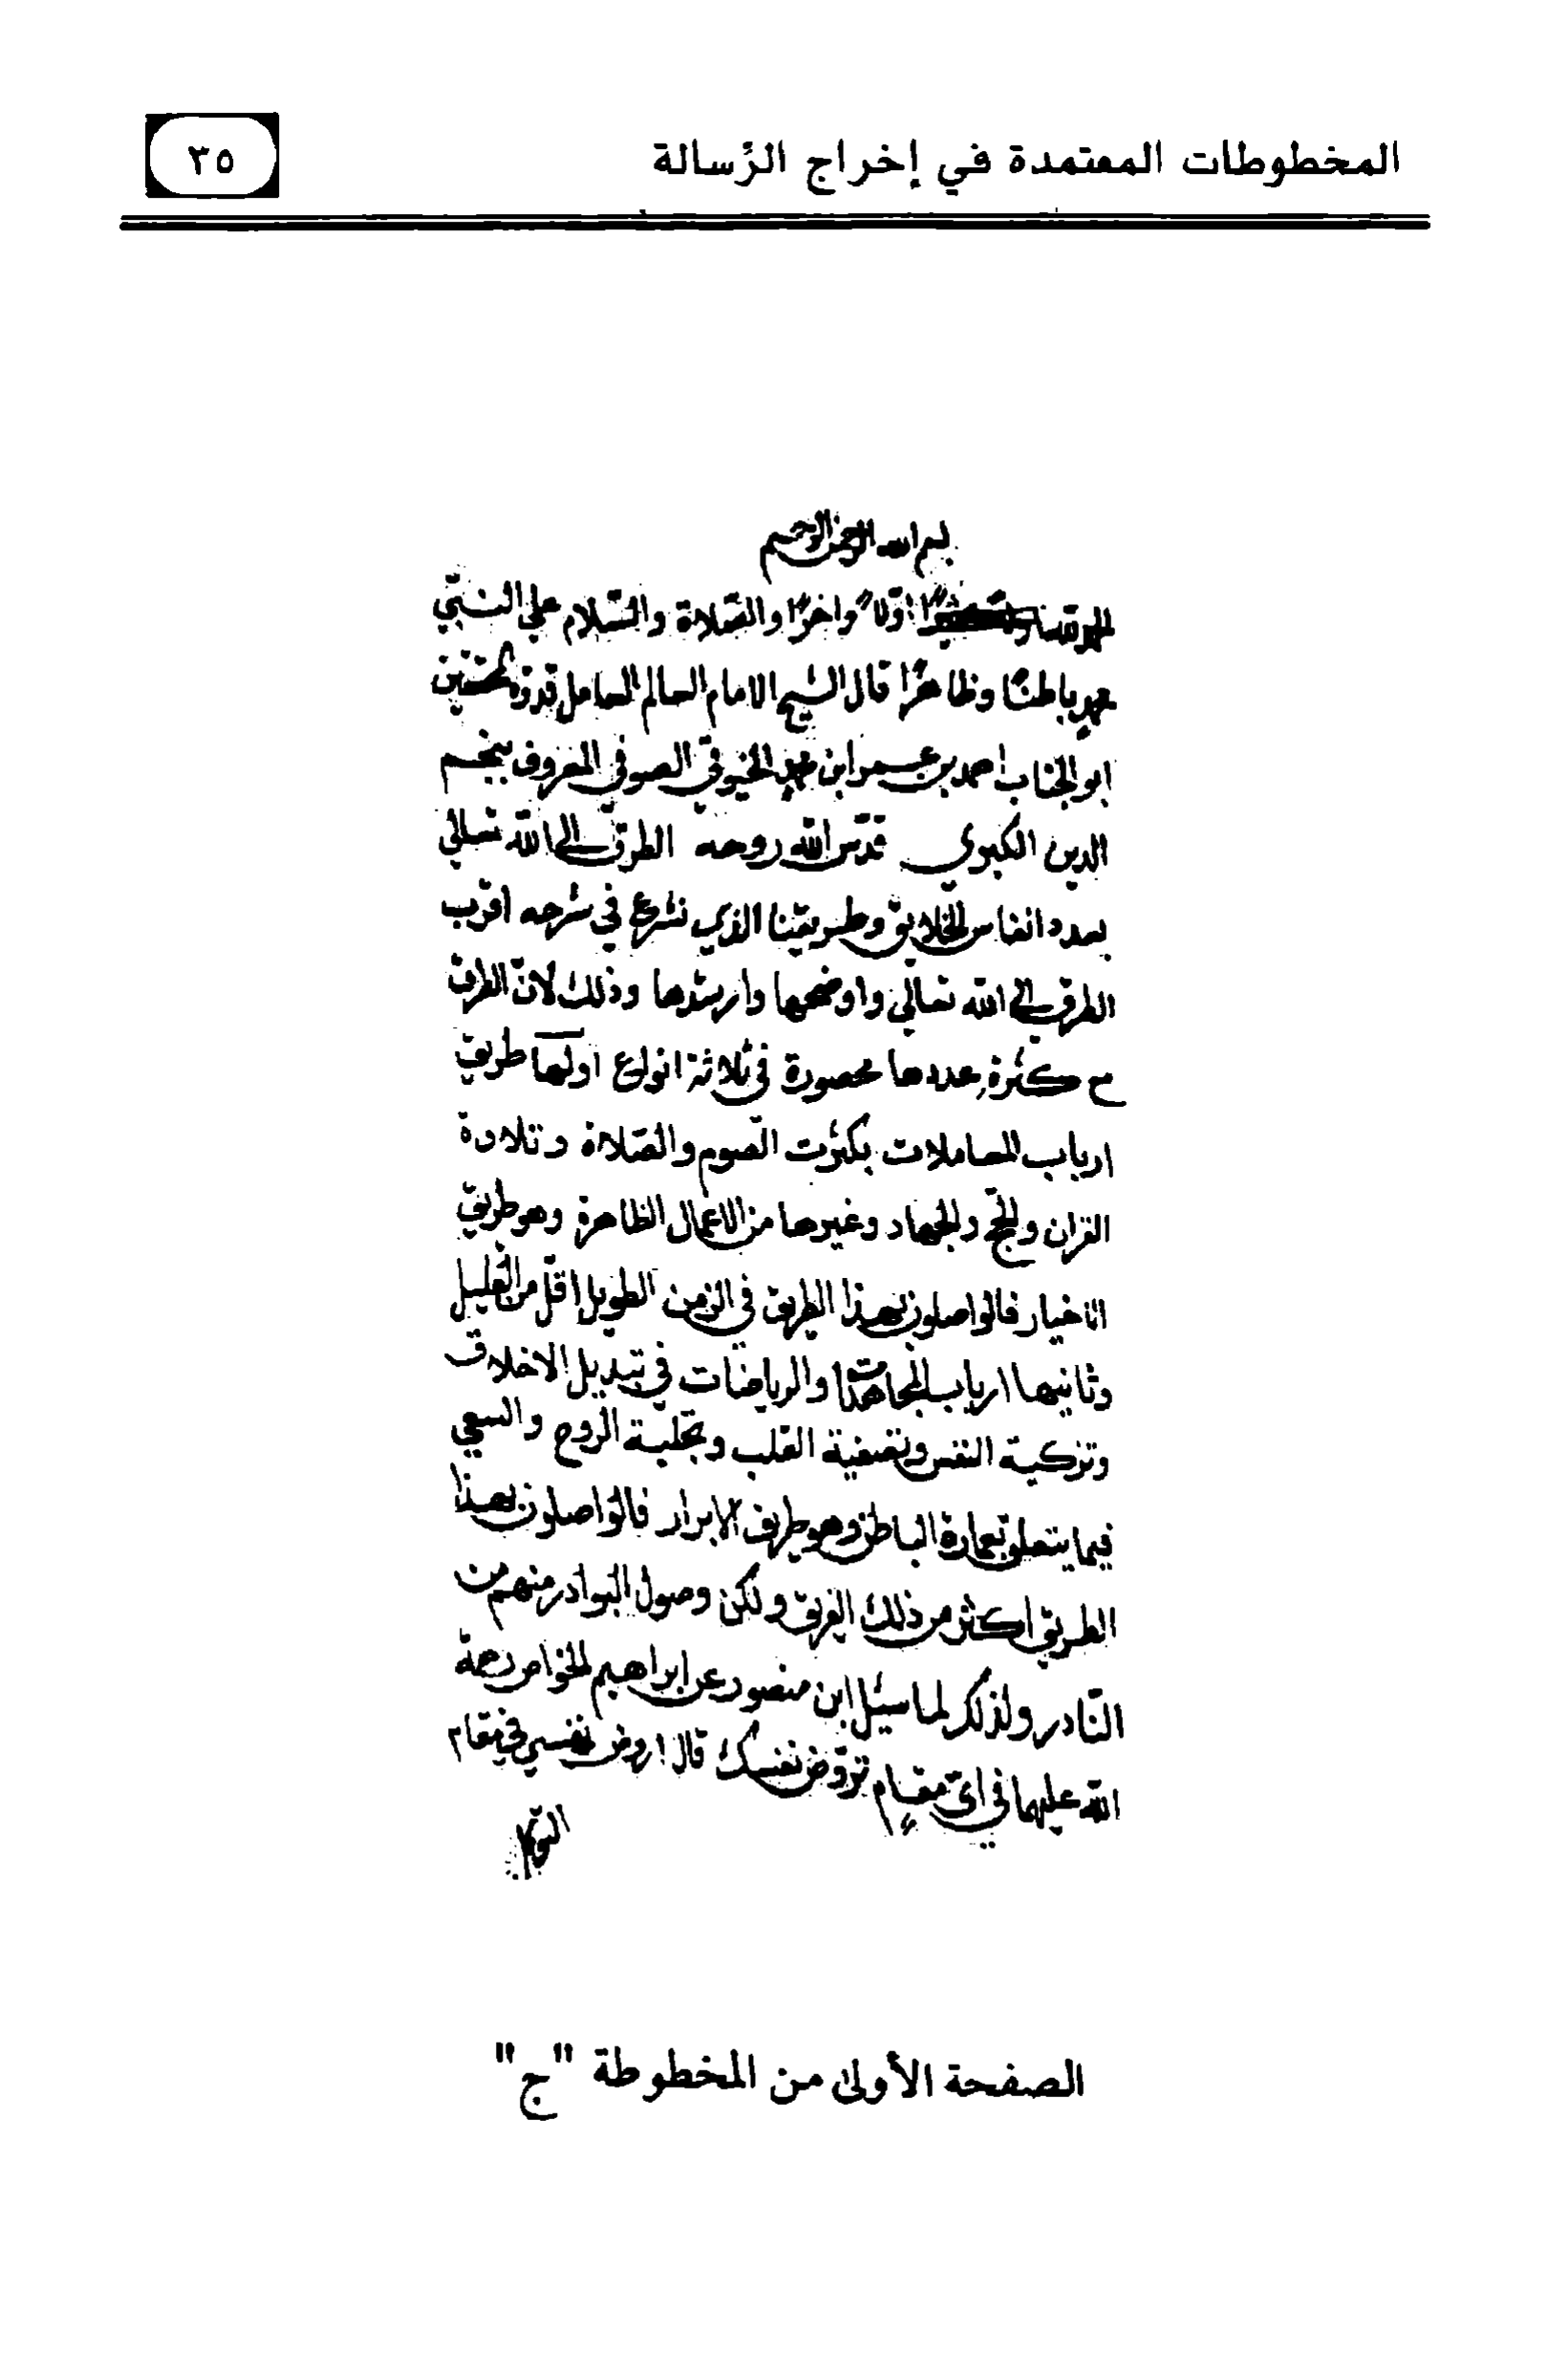 المخطوطات المعتمدة في إخراج الرِّسالة
٣٥
بسم الله الرحمن الرحيم
الحمد لله اوّلاً واخرًا والصّلاة والسّلام على النبيّ
محمد باطنًا وظاهرًا قال الشيخ الامام العالم العامل قدوة المحققين
ابو الجناب احمد بن عمر ابن محمد الخيوقي الصوفي المعروف بنجم
الدين الكبري قدّس الله روحه الطرق الى الله تعالى
بعدد انفاس الخلايق وطريقتنا الذي نشرع في شرحه اقرب
الطرق الى الله تعالى واوضحها وارشدها وذلك لانّ الطرق
مع كثرة عددها محصورة في ثلاثة انواع اولها طريق
ارباب المعاملات بكثرت الصّوم والصّلاة وتلاوة
القران والحج والجهاد وغيرها من الاعمال الظاهرة وهو طريق
الاخيار فالواصلون بهذا الطريق في الزمن الطويل اقلّ من القليل
وثانيها ارباب المجاهدات والرياضات في تبديل الاخلاق
وتزكية النفس وتصفية القلب وتحلية الروح والسعي
فيما يتعلق بعمارة الباطن وهو طريق الابرار فالواصلون بهذا
الطريق اكثر من ذلك الفريق ولكن وصول البوادر منهم من
النّادر ولذلك لما سئيل ابن منصور عن ابراهيم الخواص رحمة
الله عليهما في ايّ مقام تروّض نفسك قال اروض نفسي في مقام
التوكل
الصفحة الأولىٰ من المخطوطة "ج"